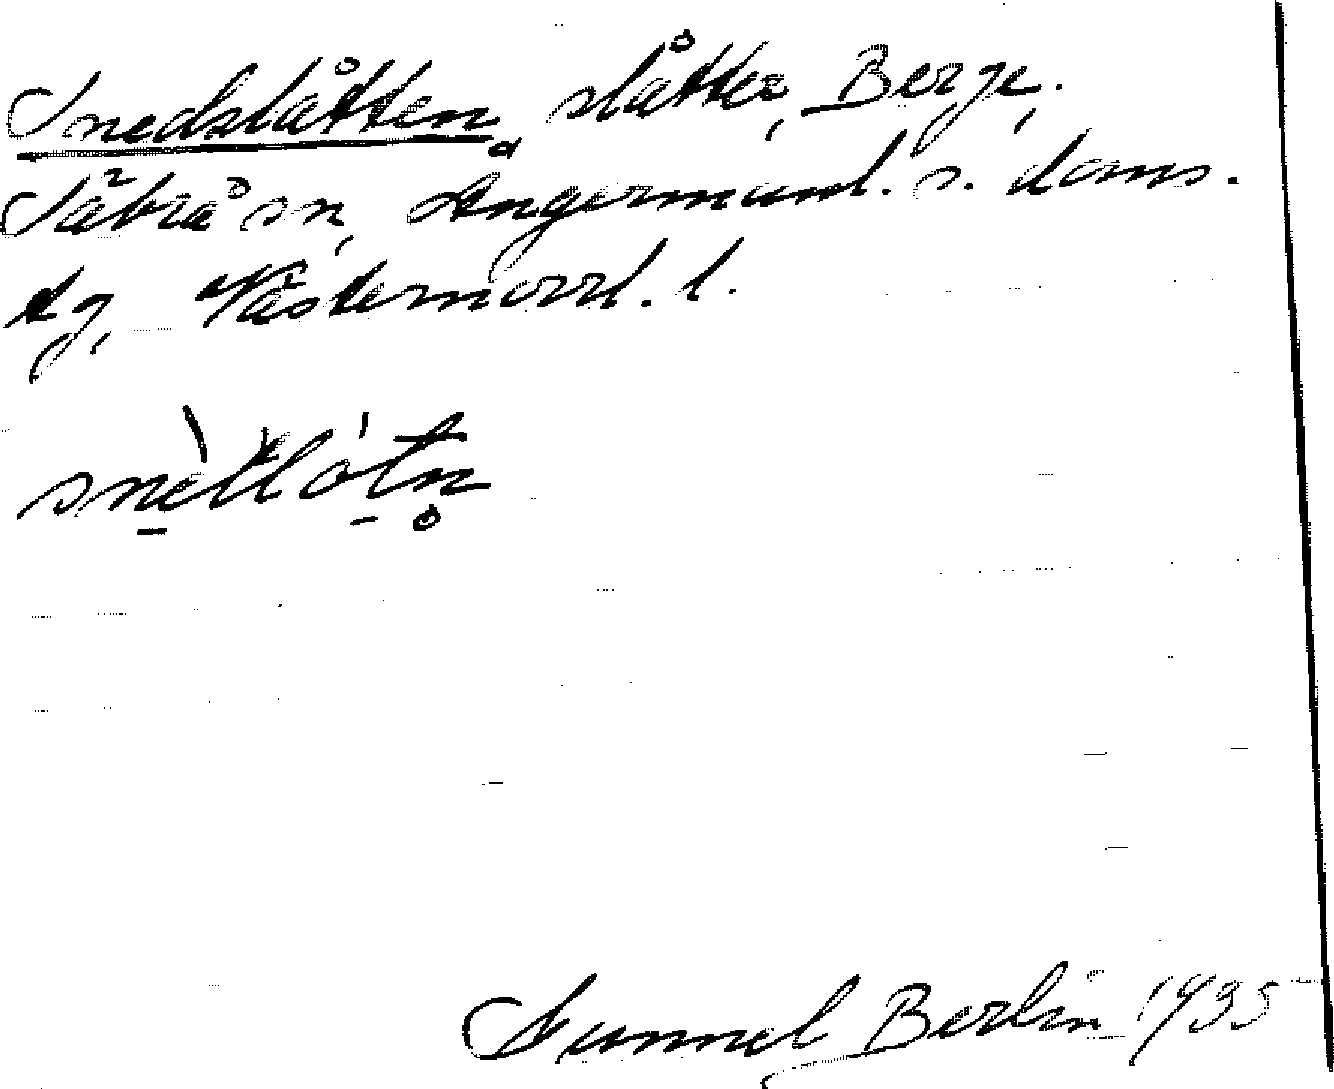 Snedslåtten, slåtter, Berge,
Säbrå sn, Ångermanl. s. doms.
tg, Västernorrl. l.
Gunnel Berlin 1935